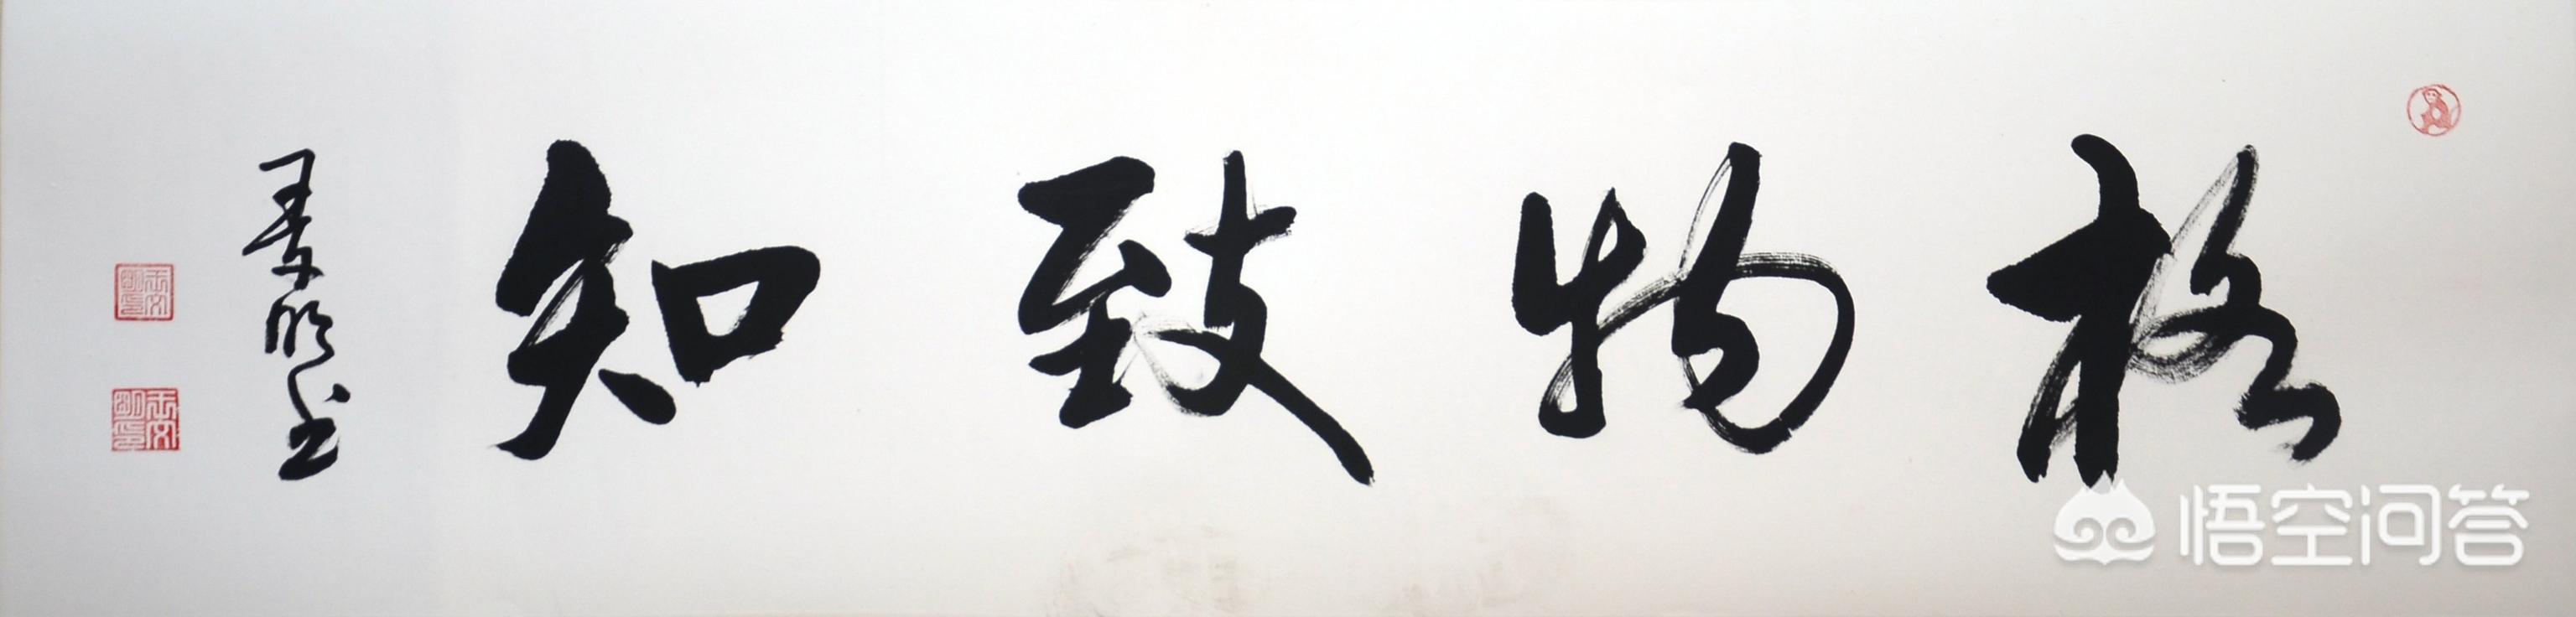 格物致知
悟空问答